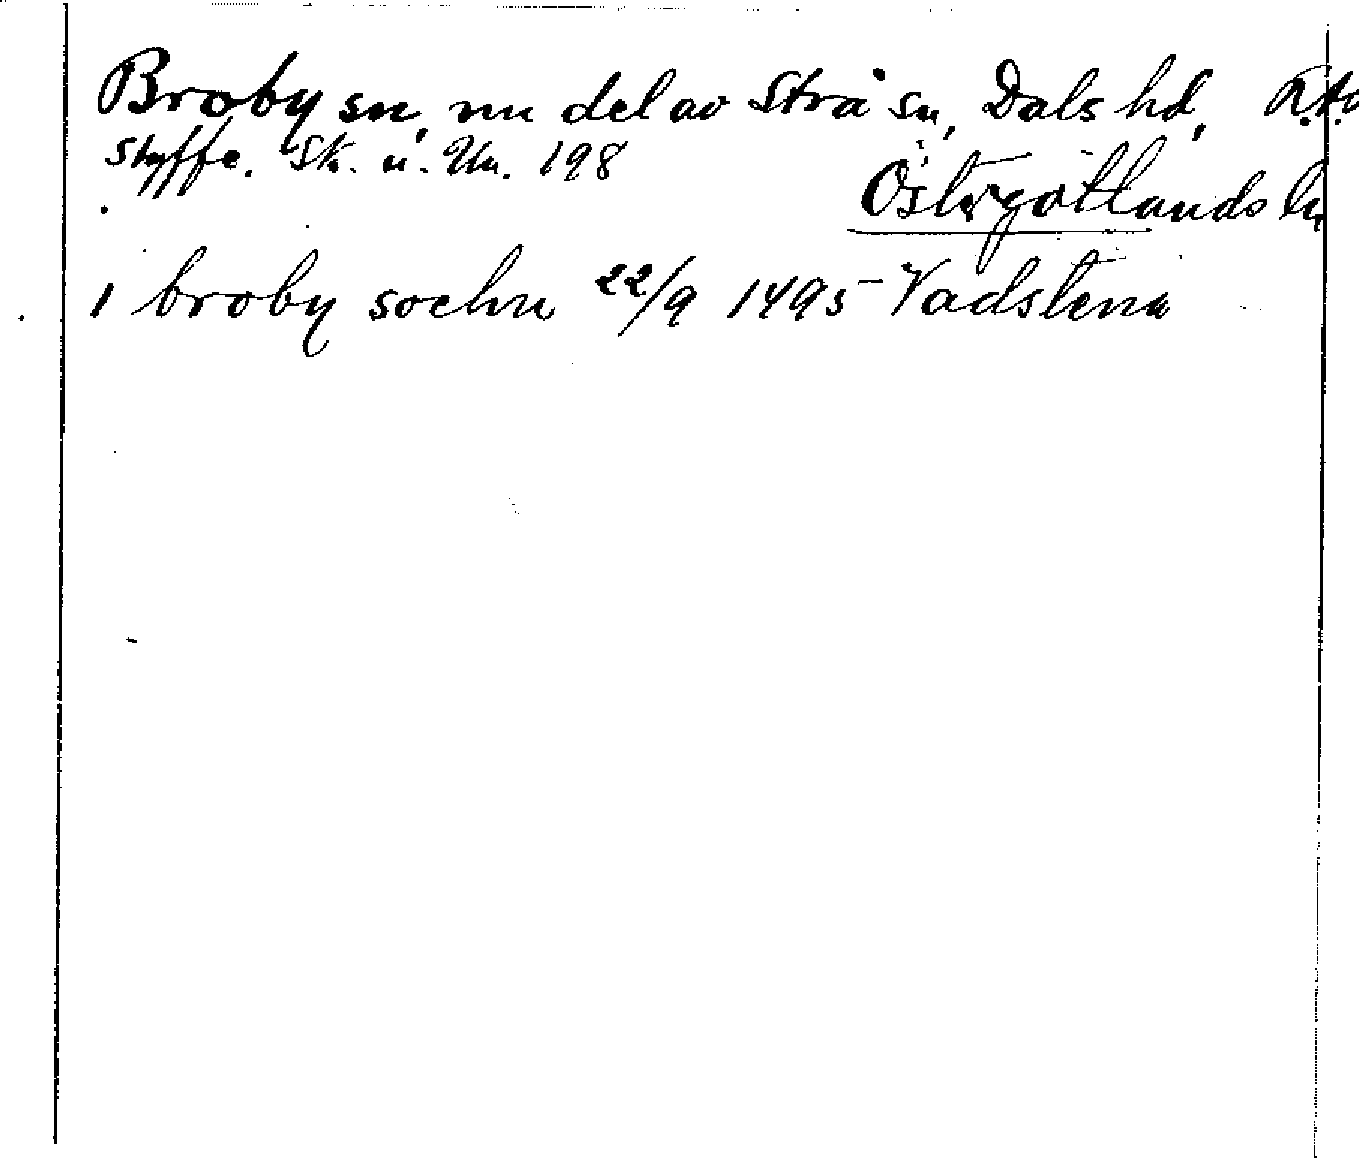 Broby sn, nu del av Strå sn, Dals hd,
Styffe. Sk. u. Un. 198
Östergötlands ln
I broby sochn 22/9 1495 Vadstena